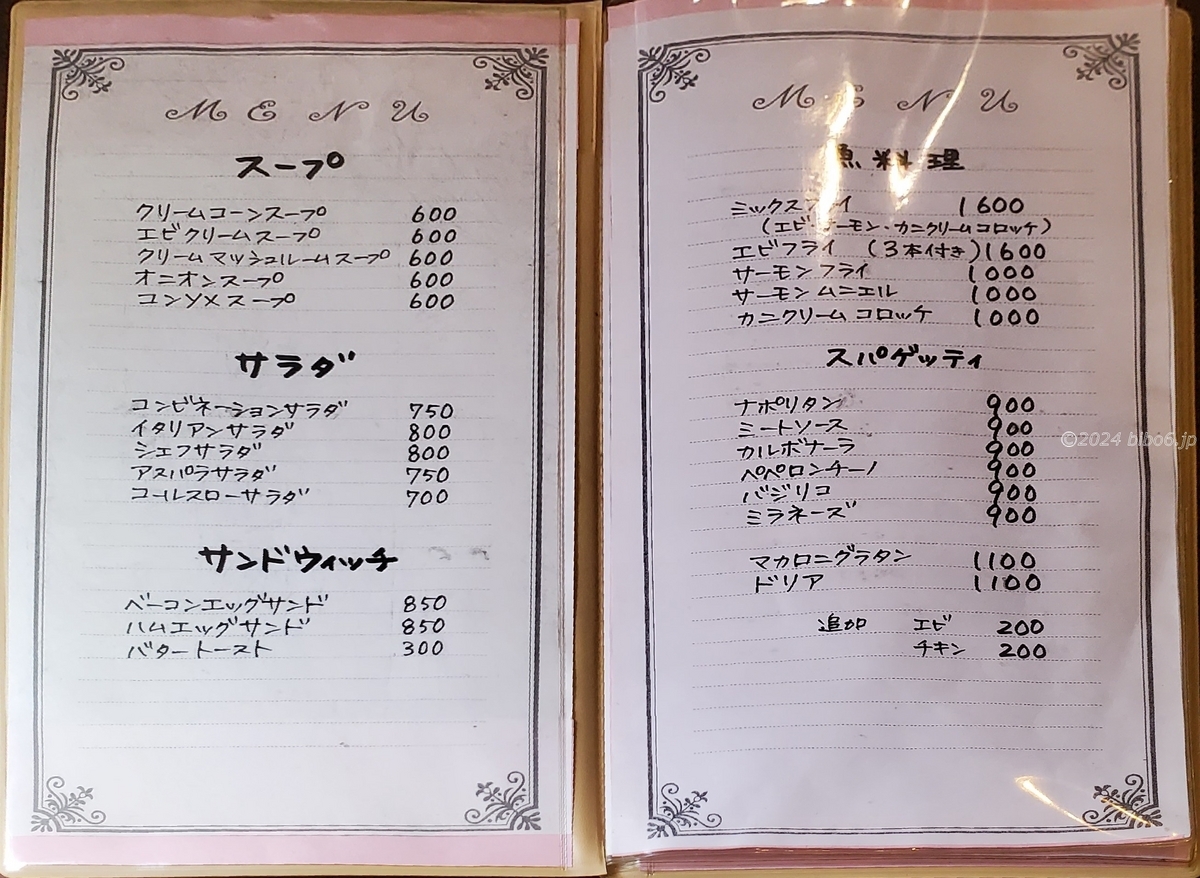 MENU
スープ
クリームコーンスープ 600
エビクリームスープ 600
クリームマッシュルームスープ 600
オニオンスープ 600
コンソメスープ 600
サラダ
コンビネーションサラダ 750
イタリアンサラダ 800
シェフサラダ 800
アスパラサラダ 750
コールスローサラダ 700
サンドウィッチ
ベーコンエッグサンド 850
ハムエッグサンド 850
バタートースト 300
MENU
魚料理
ミックスフライ 1600
(エビ・サーモン・カニクリームコロッケ)
エビフライ (3本付き) 1600
サーモンフライ 1000
サーモンムニエル 1000
カニクリームコロッケ 1000
スパゲッティ
ナポリタン 900
ミートソース 900
カルボナーラ 900
ペペロンチーノ 900
バジリコ 900
ミラネーズ 900
マカロニグラタン 1100
ドリア 1100
追加 エビ 200
チキン 200
©2024 bibo6.jp